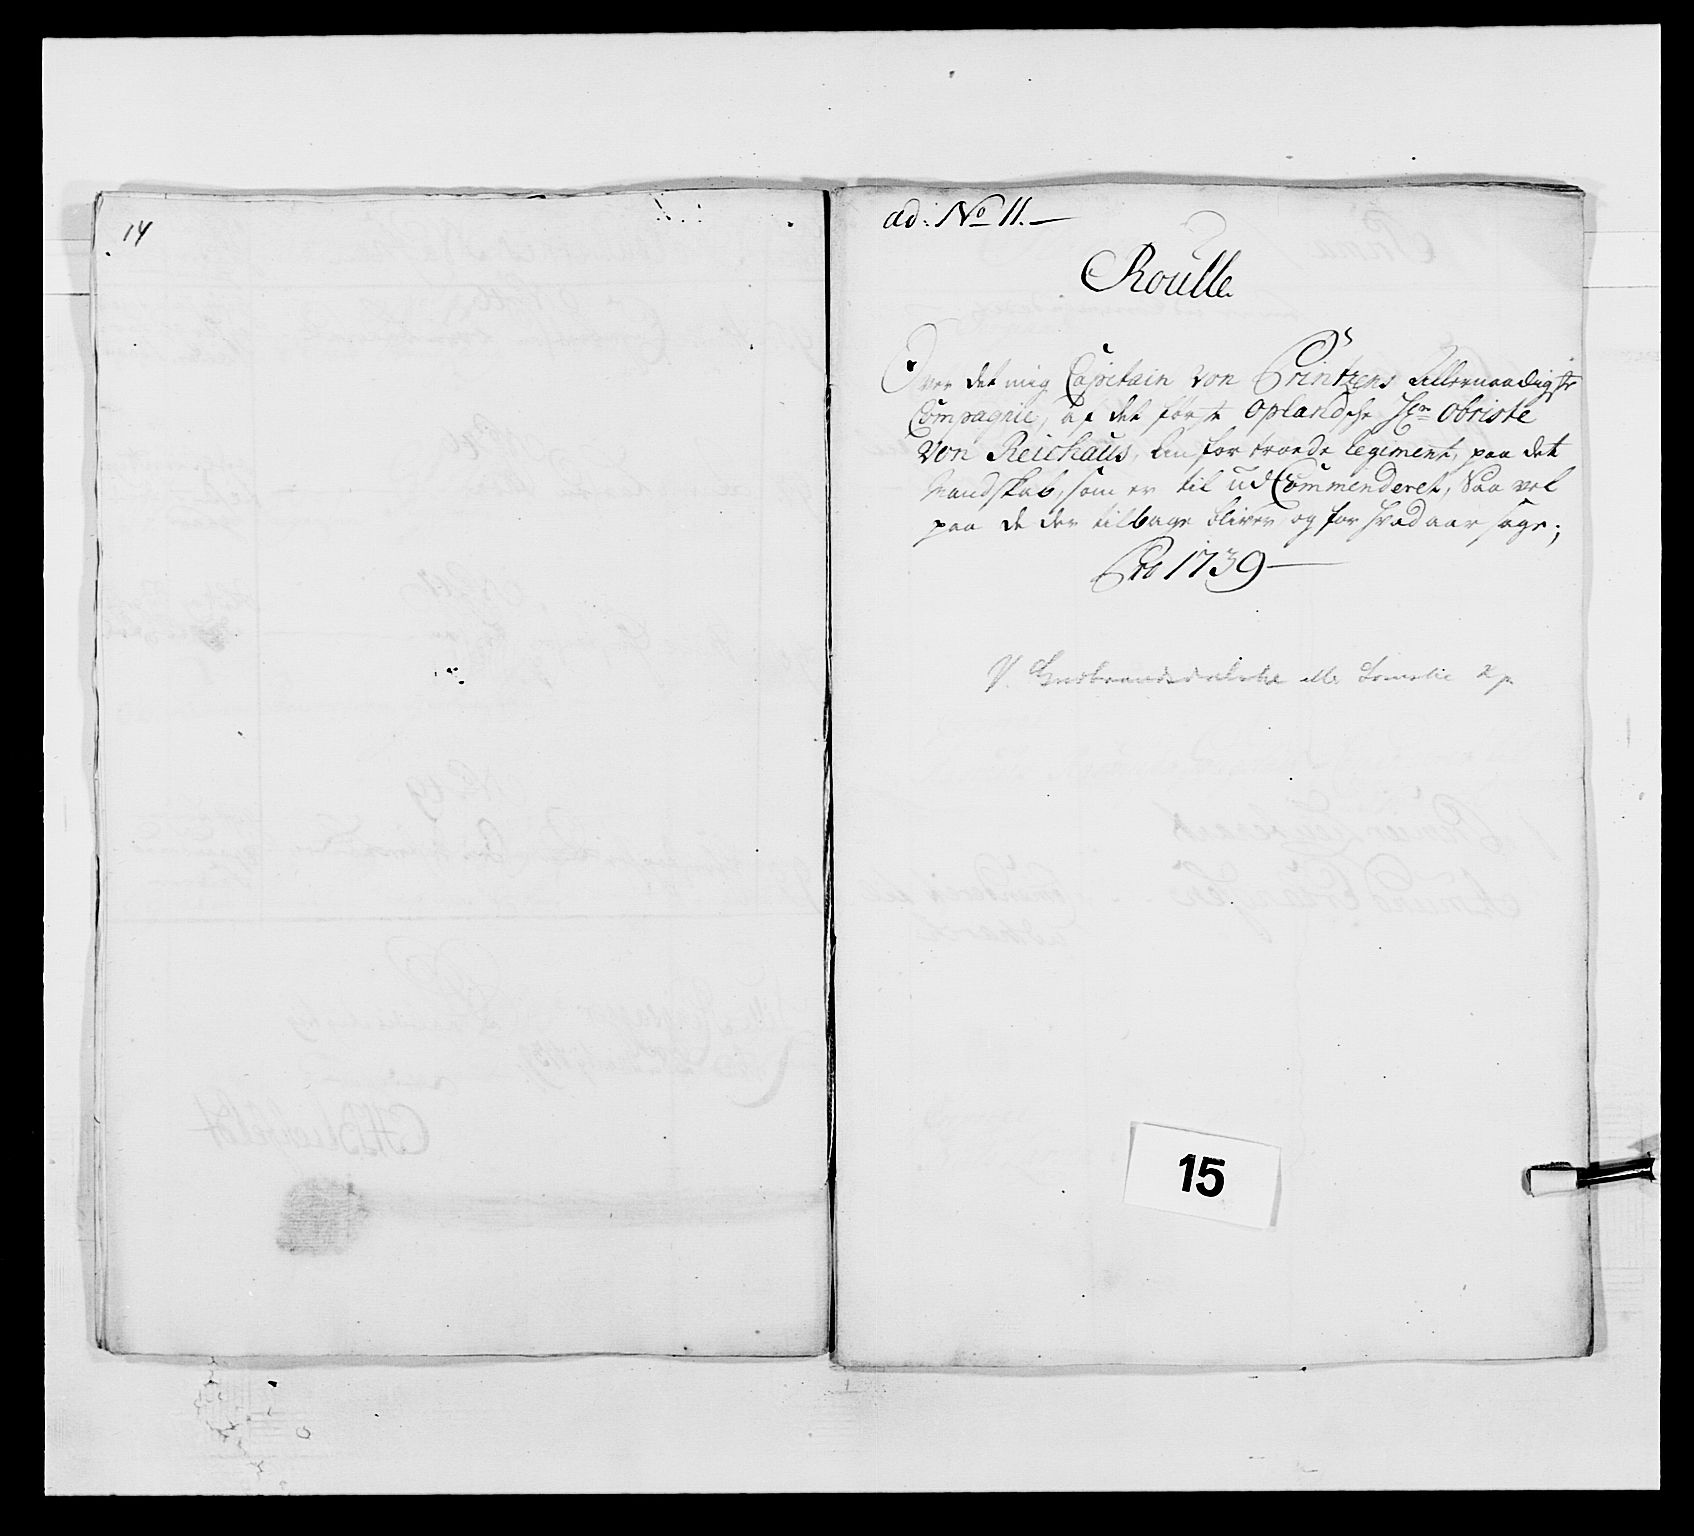 14
ad: No 11.
Roulle
Over det mig Capitain von Printzens Allernaadigste
Compagnie, af det første Oplandske Hrn Obriste
von Reichaus, anfortroede Regiment, paa det
Mandskab, som er til udCommenderet, Saa vel
paa de der tilbage bliver, og for hvad aarsage;
Pro 1739
V. Gudbrandsdalske ell. Lomske Kp.
15